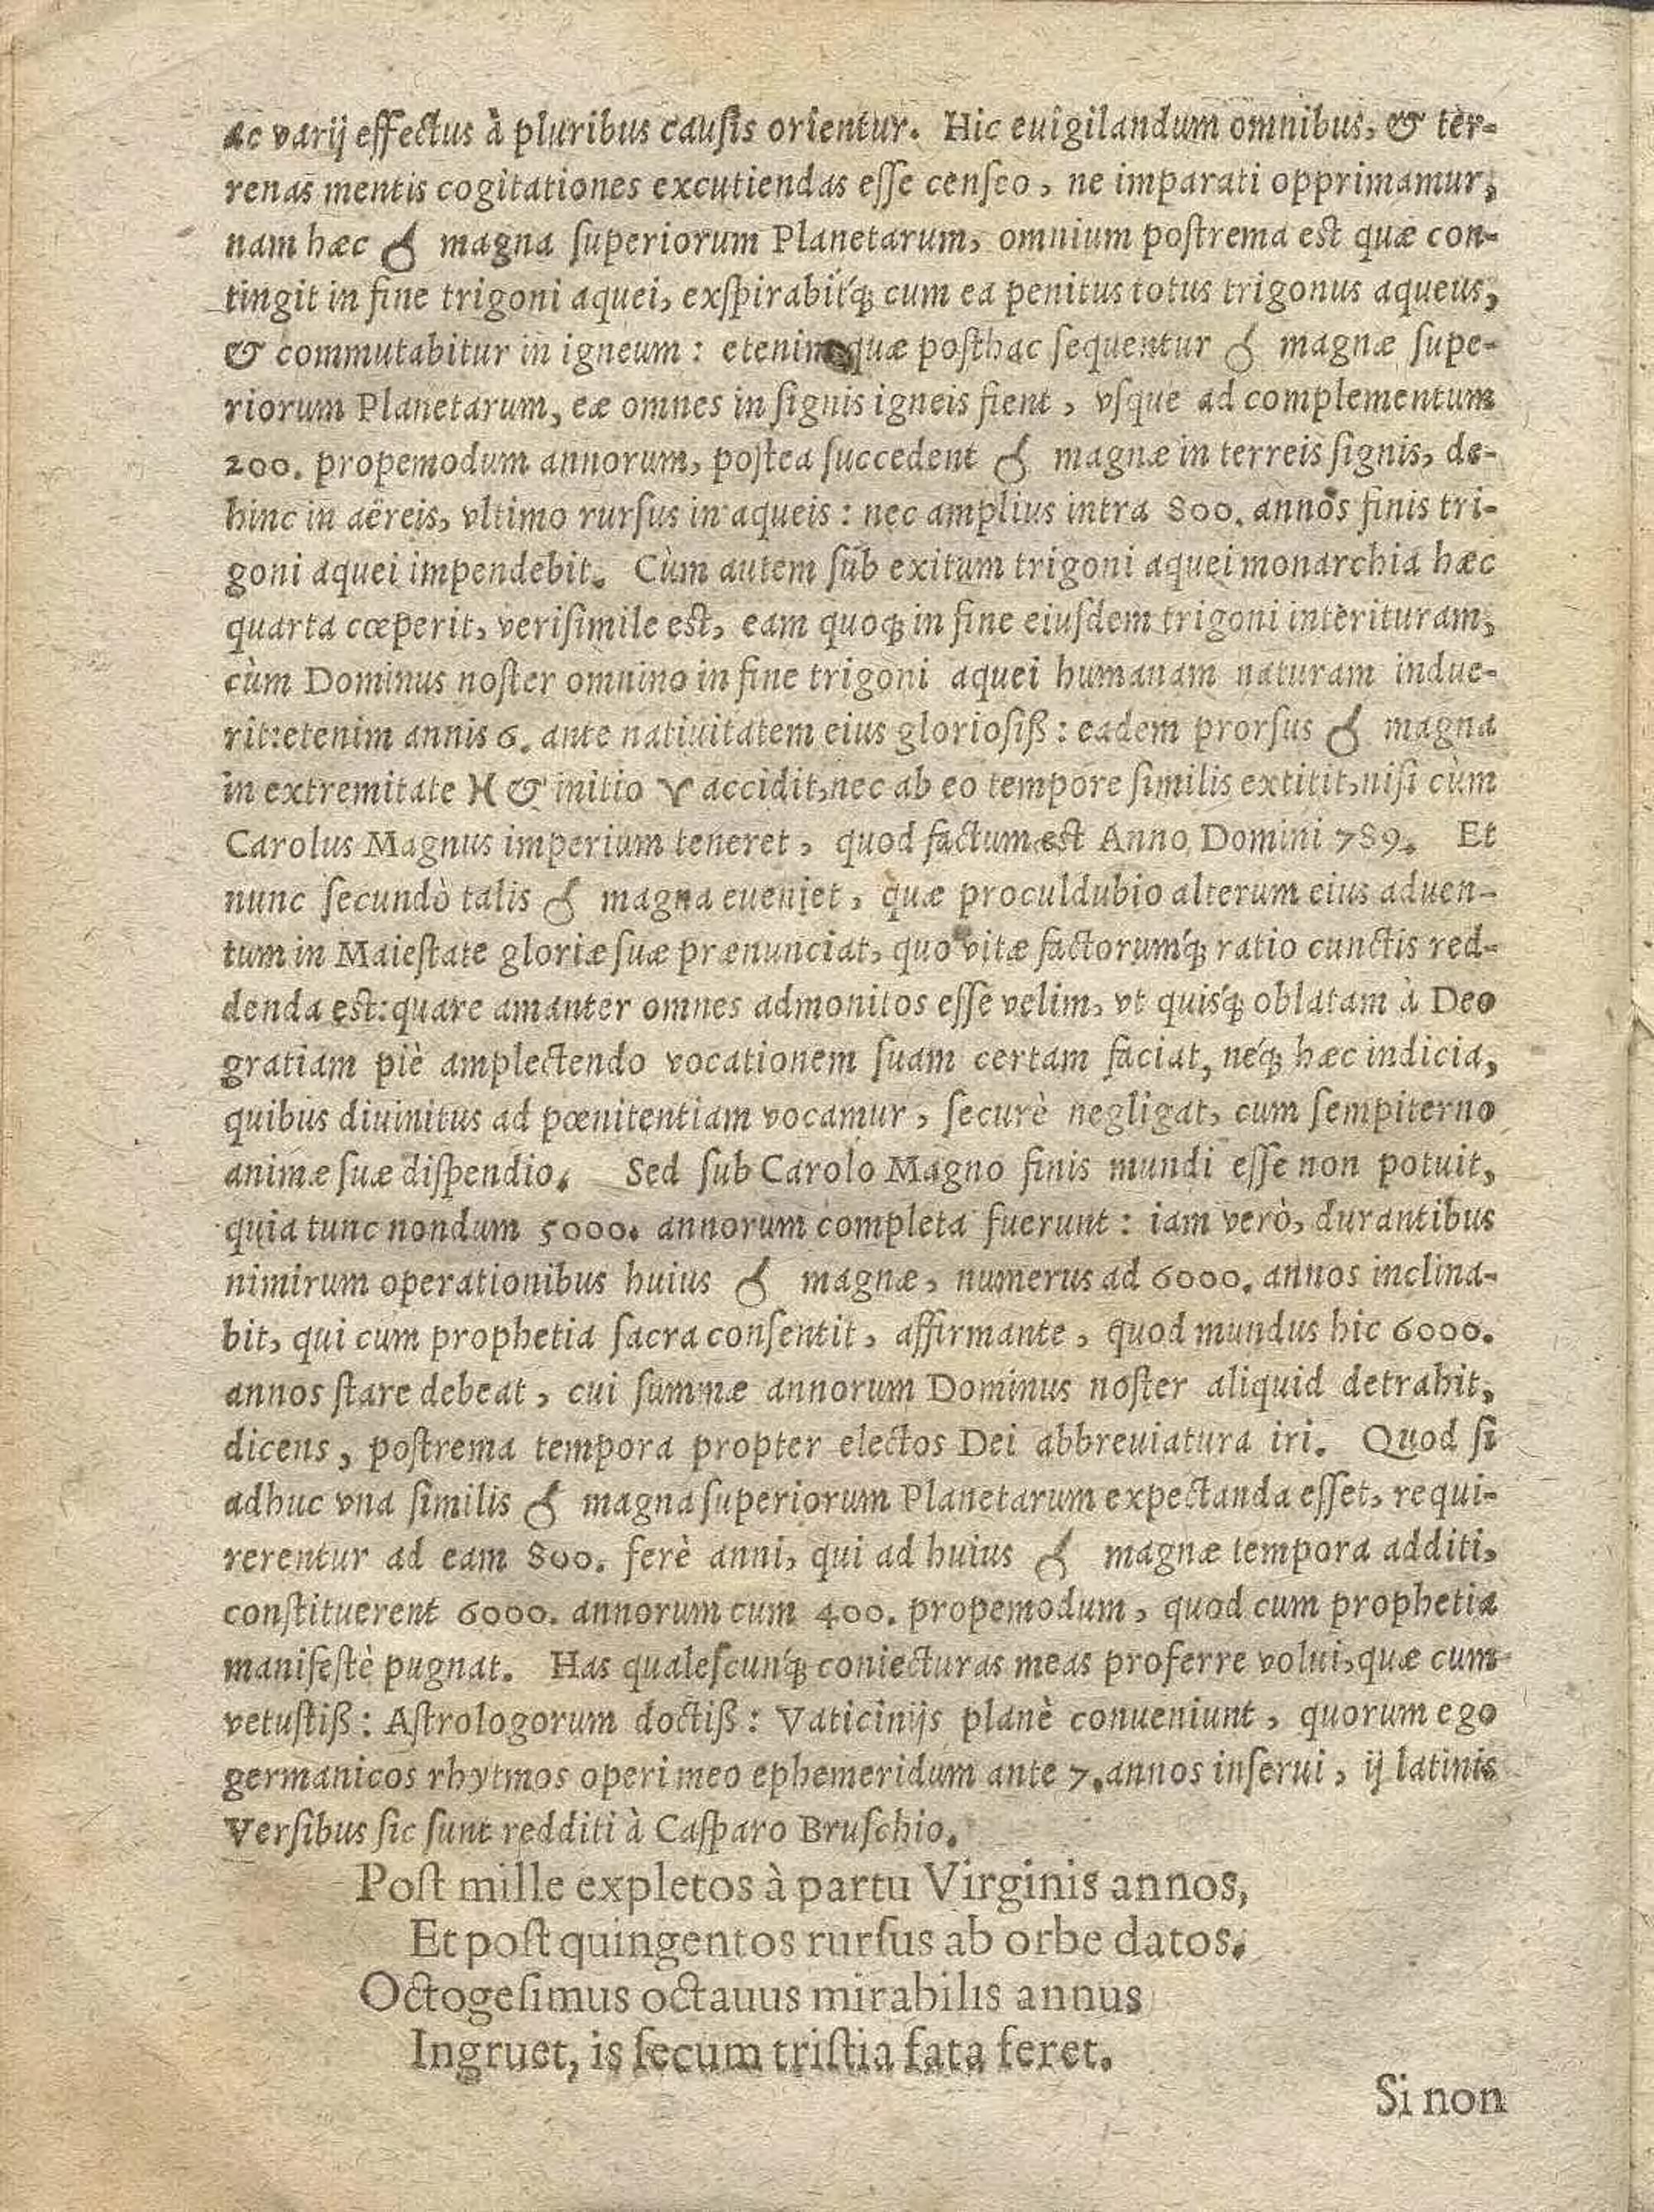 ac varij effectus à pluribus cauſis orientur. Hic euigilandum omnibus, & ter-
renas mentis cogitationes excutiendas eſſe cenſeo, ne imparati opprimamur,
nam hæc ☌ magna ſuperiorum Planetarum, omnium poſtrema est quæ con-
tingit in fine trigoni aquei, exſpirabit́q; cum ea penitus totus trigonus aqueus,
& commutabitur in igneum: etenim quæ poſthac ſequentur ☌ magnæ ſupe-
riorum Planetarum, eæ omnes in ſignis igneis fient, vſque ad complementum
200. propemodum annorum, poſtea ſuccedent ☌ magnæ in terreis ſignis, de-
hinc in aëreis, vltimo rurſus in aqueis: nec amplius intra 800. annos finis tri-
goni aquei impendebit. Cùm autem ſub exitum trigoni aquei monarchia hæc
quarta cœperit, veriſimile est, eam quoq; in fine eiuſdem trigoni interituram,
cùm Dominus noſter omnino in fine trigoni aquei humanam naturam indue-
rit: etenim annis 6. ante natiuitatem eius glorioſiß: eadem prorſus ☌ magna
in extremitate ♓ & initio ♈ accidit, nec ab eo tempore ſimilis extitit, niſi cùm
Carolus Magnus imperium teneret, quod factum est Anno Domini 789. Et
nunc ſecundò talis ☌ magna eueniet, quæ proculdubio alterum eius aduen-
tum in Maieſtate gloriæ ſuæ prænunciat, quo vitæ factoruḿq; ratio cunctis red-
denda est: quare amanter omnes admonitos eſſe velim, vt quiśq; oblatam à Deo
gratiam piè amplectendo vocationem ſuam certam faciat, néq; hæc indicia,
quibus diuinitus ad pœnitentiam vocamur, ſecurè negligat, cum ſempiterno
animæ ſuæ diſpendio. Sed ſub Carolo Magno finis mundi eſſe non potuit,
quia tunc nondum 5000. annorum completa fuerunt: iam verò, durantibus
nimirum operationibus huius ☌ magnæ, numerus ad 6000. annos inclina-
bit, qui cum prophetia ſacra conſentit, affirmante, quod mundus hic 6000.
annos ſtare debeat, cui ſummæ annorum Dominus noſter aliquid detrahit,
dicens, poſtrema tempora propter electos Dei abbreuiatura iri. Quod ſi
adhuc vna ſimilis ☌ magna ſuperiorum Planetarum expectanda eſſet, requi-
rerentur ad eam 800. ferè anni, qui ad huius ☌ magnæ tempora additi,
conſtituerent 6000. annorum cum 400. propemodum, quod cum prophetia
manifeſtè pugnat. Has qualeſcunq́; coniecturas meas proferre volui, quæ cum
vetuſtiß: Aſtrologorum doctiß: Vaticinijs planè conueniunt, quorum ego
germanicos rhytmos operi meo ephemeridum ante 7. annos inſerui, ij latinis
Verſibus ſic ſunt redditi à Caſparo Bruſchio.
Poſt mille expletos à partu Virginis annos,
Et poſt quingentos rurſus ab orbe datos.
Octogeſimus octauus mirabilis annus
Ingruet, is ſecum triſtia fata feret.
Si non